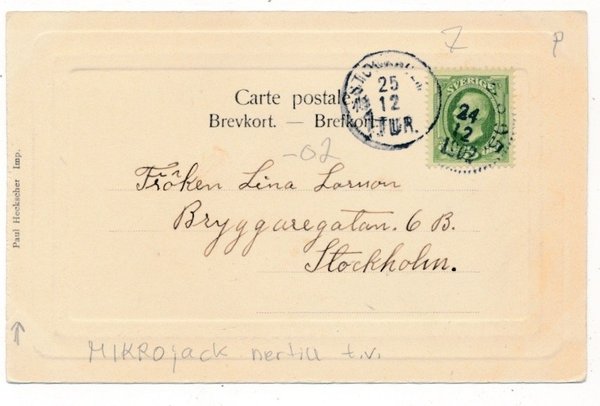 7
P
Carte postale.
Brevkort. — Brefkort.
25
12
TUR.
SVERIGE
24
12
1902
-02
Fröken Lina Larsson
Bryggaregatan. 6 B.
Stockholm.
Paul Heckscher Imp.
MIKROjack nertill t.v.